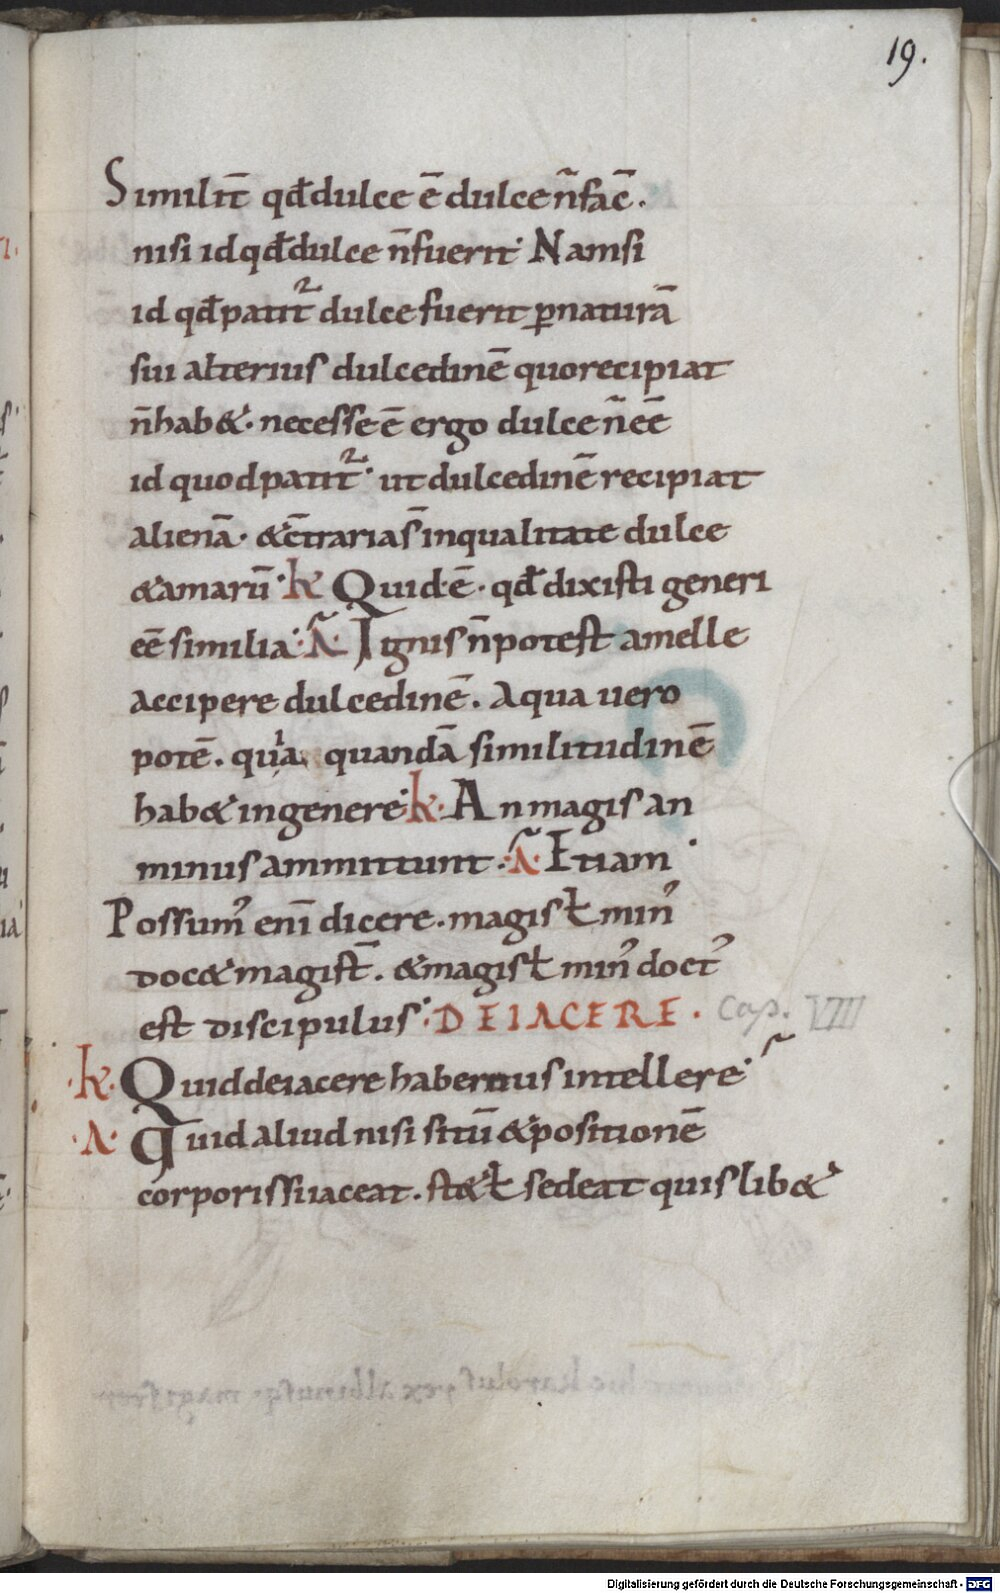 19.
Similit̄ qđ dulce ē dulce ñ fac̄.
nisi id qđ dulce n̄ fuerit. Nam si
id qđ patit᷑ dulce fuerit ꝑ naturā
sui alterius dulcedinē quo recipiat
n̄ hab&. necesse ē ergo dulce ñ eē
id quod patit᷑. ut dulcedinē recipiat
alienā. & c̄traria s̄ in qualitate dulce
& amarū. k Quid ē. qđ dixisti generi
eē similia. A. Ignis n̄ potest a melle
accipere dulcedinē. Aqua uero
potē. quia quandā similitudinē
hab& in genere. k. An magis an
minus ammittunt. A. Etiam.
Possum' eni̅ dicere. magis ł min'
doc& magist̄. & magis ł min' doct'
est discipulus. DE IACERE. Cap. VIII
k. Quid de iacere habemus intellere
A. Quid aliud nisi sitū & positionē
corporis si iaceat. st& ł sedeat quislib&